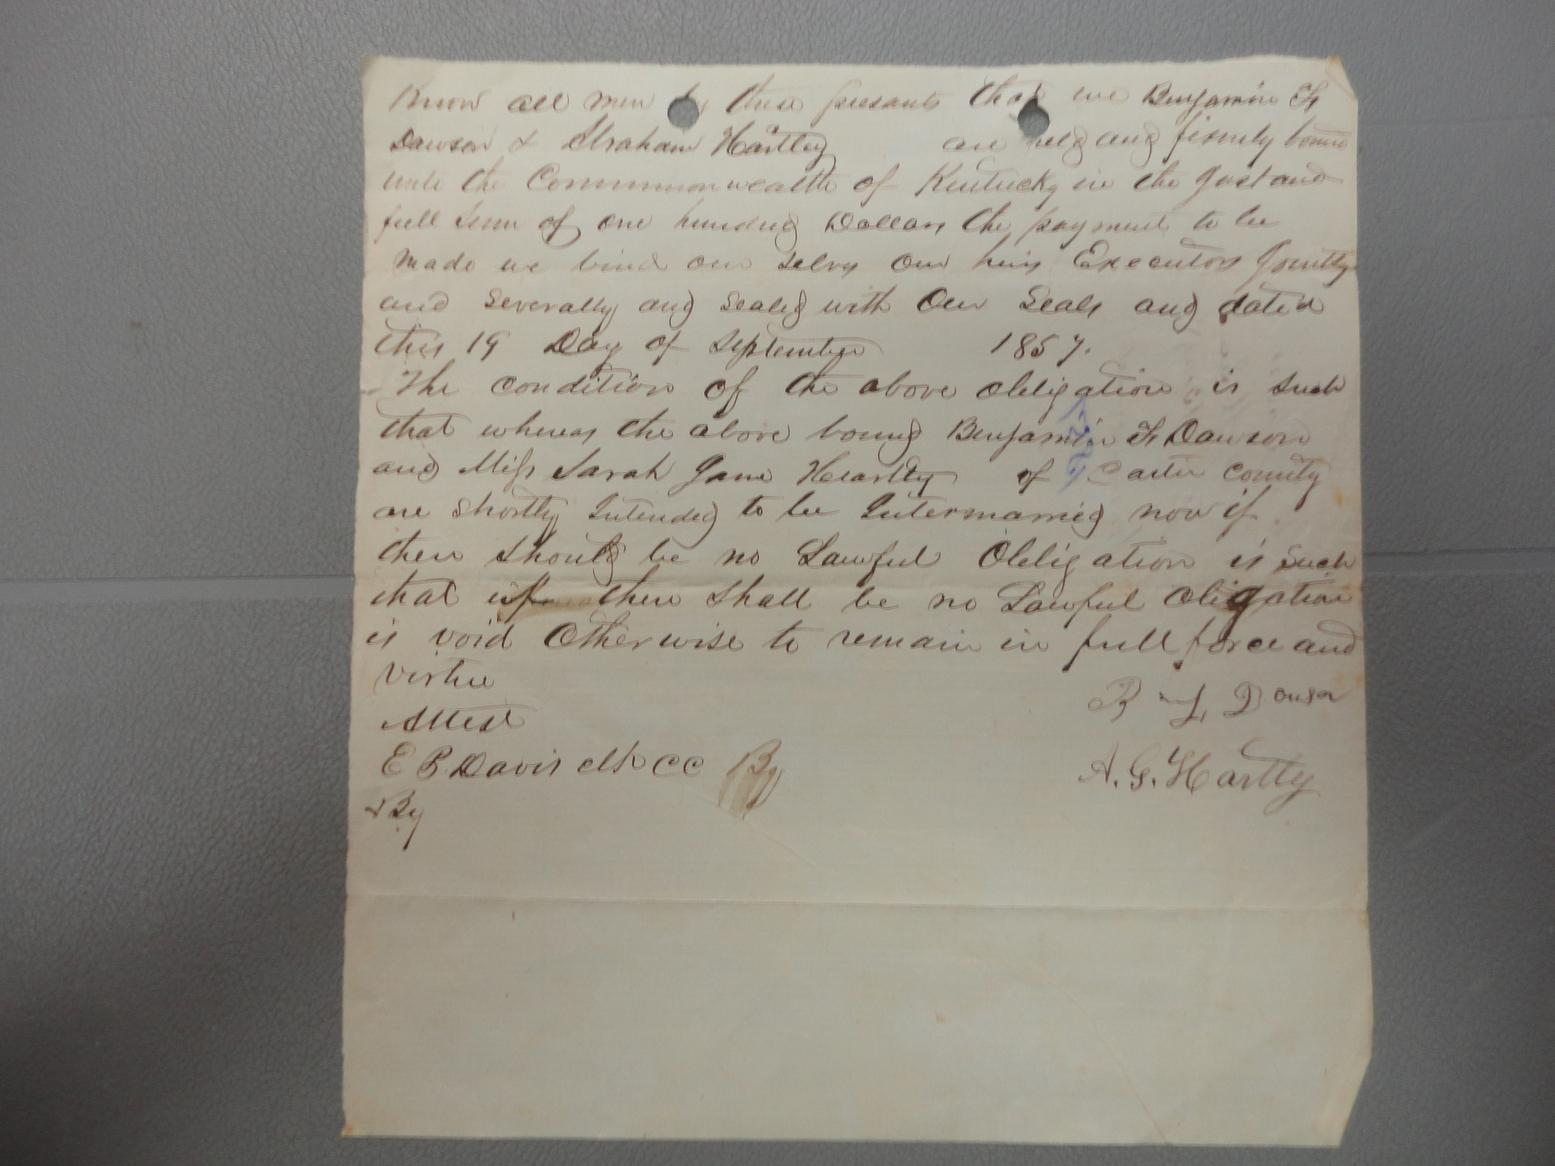 Know all men by these presants that we Benjamin F
Dawson & Abraham Hartley are held and firmly bound
unto the Commonwealth of Kentucky in the Just and
full Sum of one hundred Dollars the payment to be
made we bind our selvs our heirs Executors Jointly
and Severally and Sealed with Our Seals and dated
this 19 Day of September 1857.
The condition of the above obligation is such
that whereas the above bound Benjamin F Dawson
and Miss Sarah Jane Heartley of Carter County
are Shortly Intended to be Intermarried now if
there Should be no Lawful Obligation is such
that if there Shall be no Lawful Obligation
is void Otherwise to remain in full force and
virtue
B F Dawson
Attest
E B Davis Clk CC By
A. G. Hartley
& By